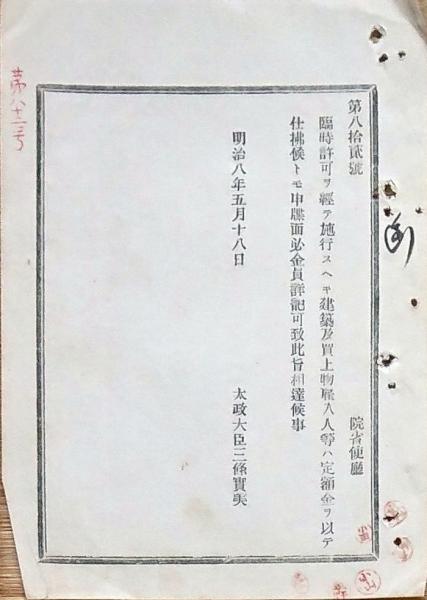 第八拾貳號
院省使廳
臨時許可ヲ經テ施行スヘキ建築及買上物雇入人等ハ定額金ヲ以テ
仕拂候トモ申牒面必金員詳記可致此旨相達候事
明治八年五月十八日
太政大臣三條實美
第八十二号